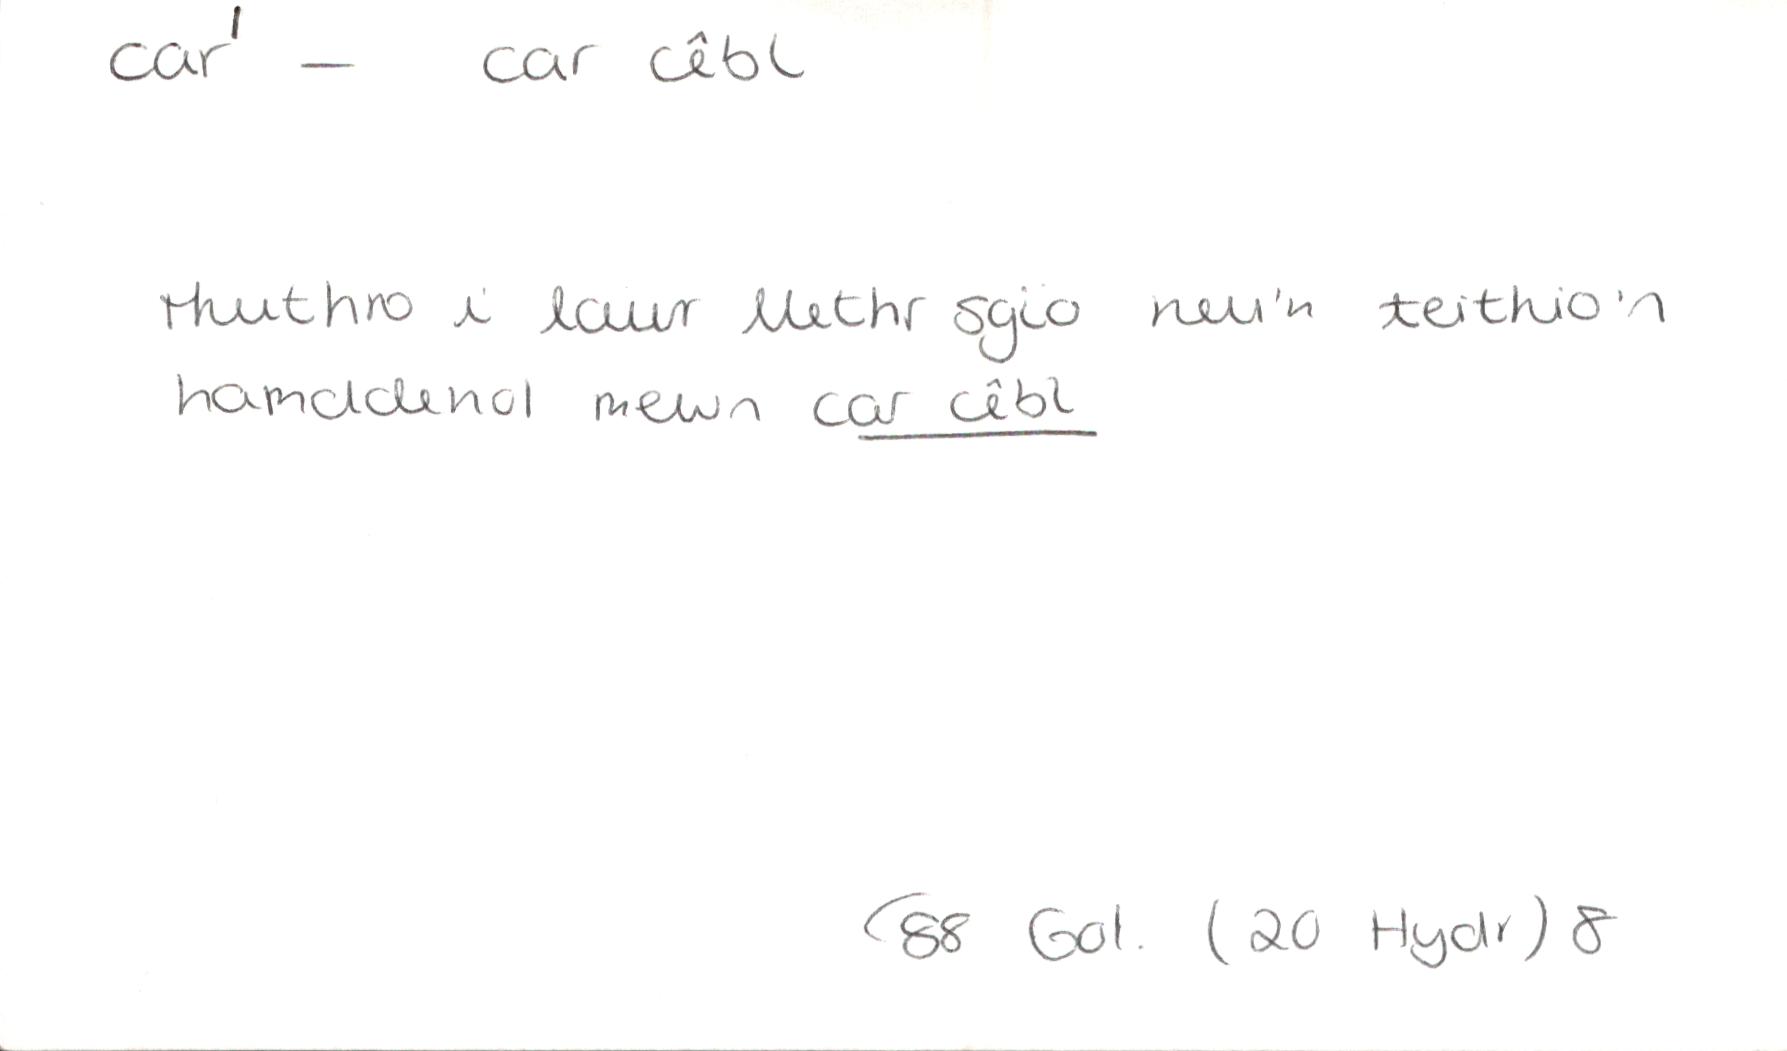 car¹ – car cêbl
rhuthro i lawr llethr sgïo neu'n teithio'n
hamddenol mewn car cêbl
88 Gol. (20 Hydr) 8